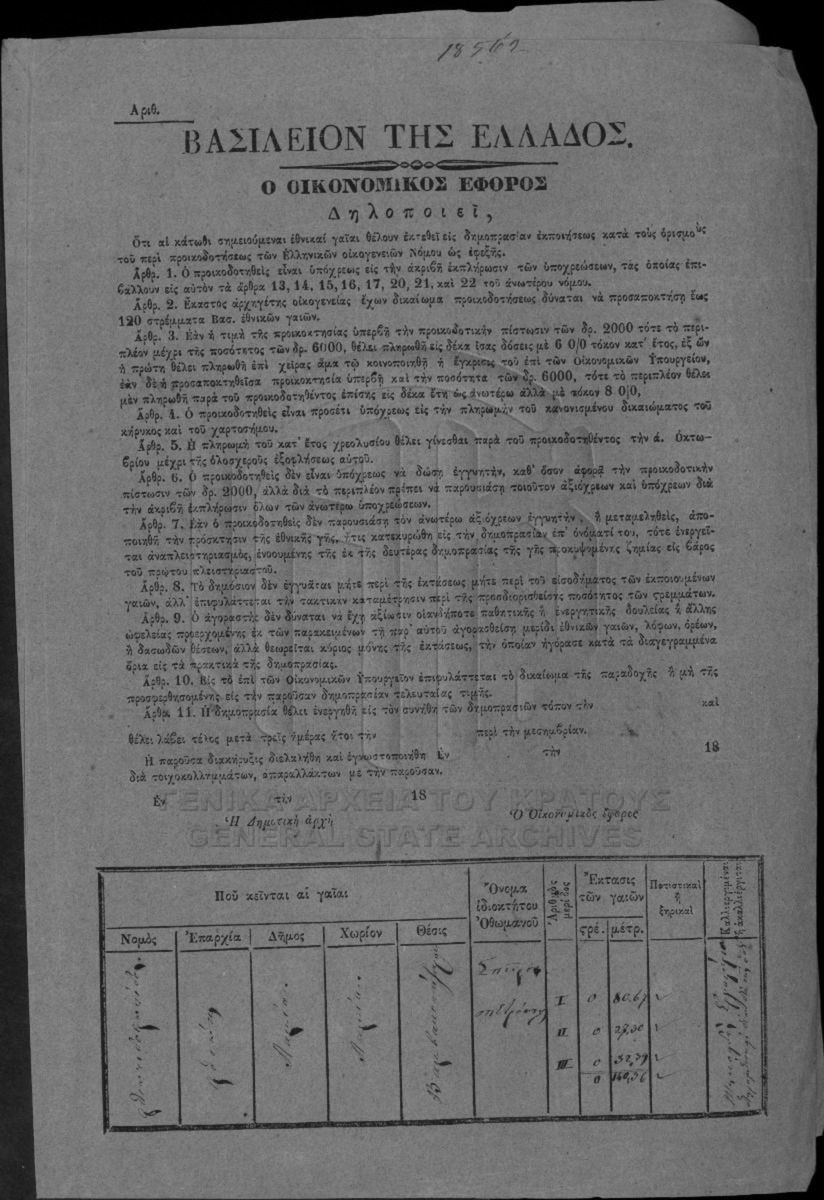 Αριθ.
ΒΑΣΙΛΕΙΟΝ ΤΗΣ ΕΛΛΑΔΟΣ.
Ο ΟΙΚΟΝΟΜΙΚΟΣ ΕΦΟΡΟΣ
Δηλοποιεῖ,
Ὅτι αἱ κάτωθι σημειούμεναι ἐθνικαί γαῖαι θέλουν ἐκτεθεῖ εἰς δημοπρασίαν ἐκποιήσεως κατὰ τοὺς ὁρισμοὺς
τοῦ περὶ προικοδοτήσεως τῶν Ἑλληνικῶν οἰκογενειῶν Νόμου ὡς ἐφεξῆς.
Ἀρθρ. 1. Ὁ προικοδοτηθεὶς εἶναι ὑπόχρεως εἰς τὴν ἀκριβῆ ἐκπλήρωσιν τῶν ὑποχρεώσεων, τὰς ὁποίας ἐπι-
βάλλουν εἰς αὐτὸν τὰ ἄρθρα 13, 14, 15, 16, 17, 20, 21, καὶ 22 τοῦ ἀνωτέρω νόμου.
Ἀρθρ. 2. Ἕκαστος ἀρχηγέτης οἰκογενείας ἔχων δικαίωμα προικοδοτήσεως δύναται νὰ προσαποκτήσῃ ἕως
120 στρέμματα Βασ. ἐθνικῶν γαιῶν.
Ἀρθρ. 3. Ἐὰν ἡ τιμὴ τῆς προικοκτησίας ὑπερβῇ τὴν προικοδοτικὴν πίστωσιν τῶν δρ. 2000 τότε τὸ περι-
πλέον μέχρι τῆς ποσότητος τῶν δρ. 6000, θέλει πληρωθῆ εἰς δέκα ἴσας δόσεις μὲ 6 0/0 τόκον κατ' ἔτος, ἐξ ὧν
ἡ πρώτη θέλει πληρωθῆ ἐπὶ χεῖρας ἅμα τῷ κοινοποιηθῇ ἡ ἔγκρισις τοῦ ἐπὶ τῶν Οἰκονομικῶν Ὑπουργείου,
ἐὰν δὲ ἡ προσαποκτηθεῖσα προικοκτησία ὑπερβῇ καὶ τὴν ποσότητα τῶν δρ. 6000, τότε τὸ περιπλέον θέλει
μὲν πληρωθῆ παρὰ τοῦ προικοδοτηθέντος ἐπίσης εἰς δέκα ἔτη ὡς ἀνωτέρω ἀλλὰ μὲ τόκον 8 0/0,
Ἀρθρ. 4. Ὁ προικοδοτηθεὶς εἶναι προσέτι ὑπόχρεως εἰς τὴν πληρωμὴν τοῦ κανονισμένου δικαιώματος τοῦ
κήρυκος καὶ τοῦ χαρτοσήμου.
Ἀρθρ. 5. Ἡ πληρωμὴ τοῦ κατ' ἔτος χρεολυσίου θέλει γίνεσθαι παρὰ τοῦ προικοδοτηθέντος τὴν ά. Ὀκτω-
βρίου μέχρι τῆς ὁλοσχεροῦς ἐξοφλήσεως αὐτοῦ.
Ἀρθρ. 6. Ὁ προικοδοτηθεὶς δὲν εἶναι ὑπόχρεως νὰ δώσῃ ἐγγυητὴν, καθ' ὅσον ἀφορᾷ τὴν προικοδοτικὴν
πίστωσιν τῶν δρ. 2000, ἀλλὰ διὰ τὸ περιπλέον πρέπει νὰ παρουσιάσῃ τοιοῦτον ἀξιόχρεων καὶ ὑπόχρεων διὰ
τὴν ἀκριβῆ ἐκπλήρωσιν ὅλων τῶν ἀνωτέρω ὑποχρεώσεων.
Ἀρθρ. 7. Ἐὰν ὁ προικοδοτηθεὶς δὲν παρουσιάσῃ τὸν ἀνωτέρω ἀξιόχρεων ἐγγυητὴν, ἢ μεταμεληθεὶς, ἀπο-
ποιηθῇ τὴν πρόσκτησιν τῆς ἐθνικῆς γῆς, ἥτις κατεκυρώθη εἰς τὴν δημοπρασίαν ἐπ' ὀνόματί του, τότε ἐνεργεῖ-
ται ἀναπλειστηριασμὸς, ἐνοουμένης τῆς ἐκ τῆς δευτέρας δημοπρασίας τῆς γῆς προκυψομένης ζημίας εἰς βάρος
τοῦ πρώτου πλειστηριαστοῦ.
Ἀρθρ. 8. Τὸ δημόσιον δὲν ἐγγυᾶται μήτε περὶ τῆς ἐκτάσεως μήτε περὶ τοῦ εἰσοδήματος τῶν ἐκποιουμένων
γαιῶν, ἀλλ' ἐπιφυλάττεται τὴν τακτικὴν καταμέτρησιν περὶ τῆς προσδιορισθείσης ποσότητος τῶν στρεμμάτων.
Ἀρθρ. 9. Ὁ ἀγοραστὴς δὲν δύναται νὰ ἔχῃ ἀξίωσιν οἱανδήποτε παθητικῆς ἢ ἐνεργητικῆς δουλείας ἢ ἄλλης
ὠφελείας προερχομένης ἐκ τῶν παρακειμένων τῇ παρ' αὐτοῦ ἀγορασθείσῃ μερίδι ἐθνικῶν γαιῶν, λόφων, ὀρέων,
ἢ δασωδῶν θέσεων, ἀλλὰ θεωρεῖται κύριος μόνης τῆς ἐκτάσεως, τὴν ὁποίαν ἠγόρασε κατὰ τὰ διαγεγραμμένα
ὅρια εἰς τὰ πρακτικὰ τῆς δημοπρασίας.
Ἀρθρ. 10. Εἰς τὸ ἐπὶ τῶν Οἰκονομικῶν Ὑπουργεῖον ἐπιφυλάττεται τὸ δικαίωμα τῆς παραδοχῆς ἢ μὴ τῆς
προσφερθησομένης εἰς τὴν παροῦσαν δημοπρασίαν τελευταίας τιμῆς.
Ἀρθρ. 11. Ἡ δημοπρασία θέλει ἐνεργηθῆ εἰς τὸν συνήθη τῶν δημοπρασιῶν τόπον τὴν καὶ
θέλει λάβει τέλος μετὰ τρεῖς ἡμέρας ἤτοι τὴν περὶ τὴν μεσημβρίαν.
Ἡ παροῦσα διακήρυξις διελαλήθη καὶ ἐγνωστοποιήθη Ἐν τὴν 18
διὰ τοιχοκολλημμάτων, ἀπαραλλάκτων μὲ τὴν παροῦσαν.
Ἐν τὴν 18
Ἡ Δημοτικὴ ἀρχὴ Ὁ Οἰκονομικὸς ἔφορος
ΓΕΝΙΚΑ ΑΡΧΕΙΑ ΤΟΥ ΚΡΑΤΟΥΣ
GENERAL STATE ARCHIVES
Ποῦ κεῖνται αἱ γαῖαι
Ὄνομα ἰδιοκτήτου Ὀθωμανοῦ
Ἀριθμὸς μερίδος
Ἔκτασις τῶν γαιῶν
Ποτιστικαὶ ἢ ξηρικαὶ
Καλλιεργημέναι ἢ ἀκαλλιέργηται
Νομὸς Ἐπαρχία Δῆμος Χωρίον Θέσις στρέ. μέτρ.
Λαμίαν Λαμίαν
I 0 80,67
II 0 27,30
III 0 32,39
0 140,36